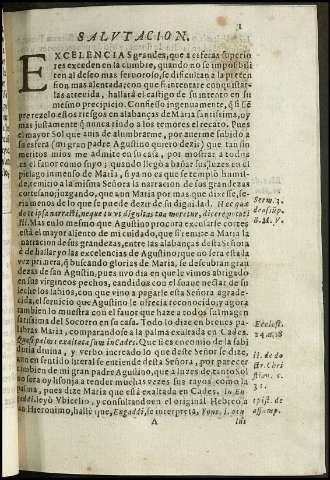 SALVTACION.
EXCELENCIAS grandes, que a esferas superio
res exceden en la cumbre, quando no se impossibili
ten al deseo mas feruoroso, se dificultan a la preten
sion mas alentada; con que si intentare conquistar-
las atreuida, hallarà el castigo de su intento en su
mesmo precipicio. Confiesso ingenuamente, q̃ siẽ
pre rezelo estos riesgos en alabanças de Maria santissima, oy
mas justamente q̃ nunca rindo a los temores el recato. Pues
el mayor Sol que anis de alumbrarme, por auerme subido a
la esfera (mi gran padre Agustino quiero dezir) que tan sin
meritos mios me admite en su casa, por mostrar a todas
es el fauor como suyo; quando llegò a bañar sus luzes en el
pielago inmenso de Maria, si ya no es que se templò humil-
de, remitio a la misma Señora la narracion de sus grandezas
cortesano, juzgando, que aun Maria por mas que dixesse, se-
ria menos de lo que se puede dezir de su dignidad. Nec quã
de te ipsa narrasti, neque tu vt dignitas tua meretur, dicere potui
sti. Mas en lo mesmo que Agustino procura escusarle cortes
està el mayor aliento de mi cortedad, que si remite a Maria la
narracion de sus grandezas, entre las alabanças desta Señora
è de hallar yo las excelencias de Agustin; y que no sera esta la
vez primera, q̃ buscando glorias de Maria, se descubran gran
dezas de san Agustin, pues uvo dia en que le vimos abrigado
en sus virgineos pechos, candidos con el suaue nectar de su
leche los labios, con que vino a pagarle esta Señora agrade-
cida, el seruicio que Agustino le ofrecia reconocido, y agora
tambien lo muestra con el fauor que haze a todos la Imagen
santissima del Socorro en su casa. Todo lo dize en breues pa-
labras Maria, comparandose a la palma exaltada en Cades.
Quasi palma exaltata sum in Cades. Que si es encomio de la sabi
duria diuina, y verbo increado lo que deste Señor se dize,
bien en sentido literal se entiende desta Señora, por parecer
tambien de mi gran padre Agustino, que a luzes de tanto Sol
no sera oy lisonja a tender muchas vezes sus rayos como la
palma, pues dize Maria que està exaltada en Cades. In En-
gaddi, leyò Ybicelio, y consultando en el original Hebreo a
san Hieronimo, hallè que, Engaddi, se interpreta, Fons, l. ocu
A
lus
Serm. 3.
de assũp.
B. M. V.
Ecclesi.
24. n. 18
ll. de do
ctr. Chri
stian. c.
31.
epist. de
assump.